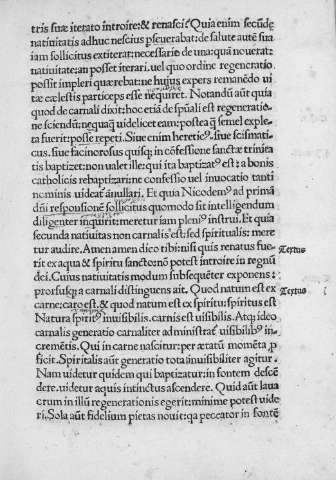 tris suæ iterato introire: & renasci? Quia enim secūdę
natiuitatis adhuc nescius pseuerabat: de salute aūt sua
iam sollicitus extiterat: necessario de una: quā nouerat:
natiuitate: an posset iterari. uel quo ordine regeneratio
possit impleri quærebat: ne hujus expers remanēdo ui
tæ cælestis particeps esse nequiret. Notandū aūt quia
quod de carnali dixit: hoc etiā de spūali est regeneratio
ne sciendū: nequaq̄ uidelicet eam: postea q̄ semel exple
ta fuerit: posse repeti. Siue enim hereticꝰ. siue scismati
cus. siue facinorosus quisq; in cōfessione sanctæ trinita
tis baptizet: non ualet ille: qui ita baptizatꝰ est: a bonis
catholicis rebaptizari: ne confessio uel inuocatio tanti
nominis uideatʳ anullari. Et quia Nicodemꝰ ad primā
dñi responsionē sollicitus quomodo sit intelligendum
diligenter inquirit: meretur iam pleniꝰ instrui. Et quia
secunda natiuitas non carnalis est: sed spiritualis: mere
tur audire. Amen amen dico tibi: nisi quis renatus fue
rit ex aqua & spiritu sancto: nō potest introire in regnū
dei. Cuius natiuitatis modum subsequēter exponens:
prorsusq; a carnali distinguens ait. Quod natum est ex
carne: caro est. & quod natum est ex spiritu: spiritus est
Natura spritꝰ inuisibilis. carnis est uisibilis. Atq; ideo
carnalis generatio carnaliter ad ministratʳ uisibilibꝰ in
cremētis. Qui in carne nascitur: per ætatū momēta p
ficit. Spiritalis aūt generatio tota inuisibiliter agitur.
Nam uidetur quidem qui baptizatur: in fontem descē
dere. uidetur aquis intinctus ascendere. Quid aūt laua
crum in illū regenerationis egerit: minime potest uide
ri. Sola aūt fidelium pietas nouit: qa peccator in fontē
Textus
Textus